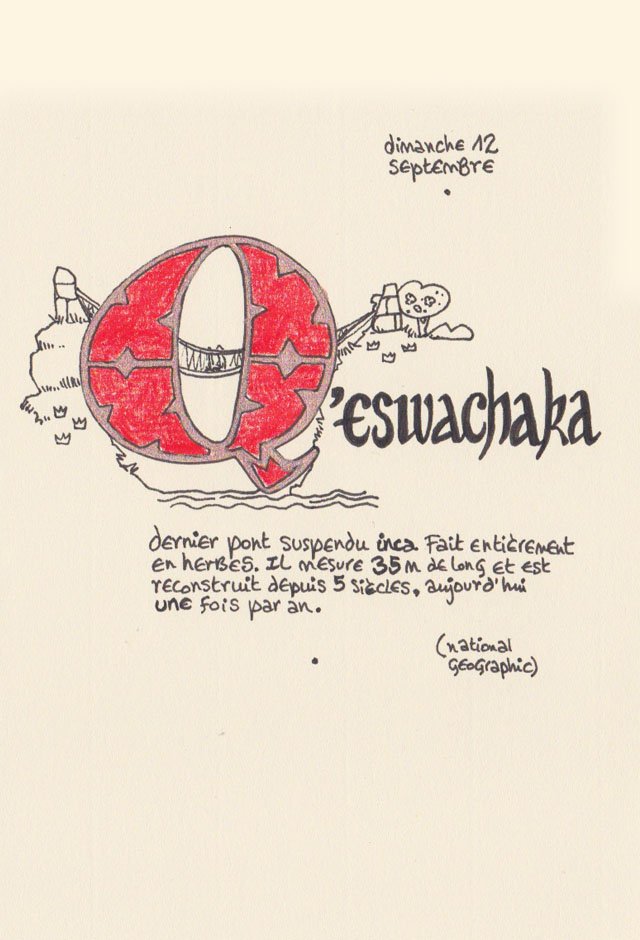 dimanche 12
septembre
Q'eswachaka
dernier pont suspendu inca. Fait entièrement
en herbes. Il mesure 35 m de long et est
reconstruit depuis 5 siècles, aujourd'hui
une fois par an.
(national
geographic)